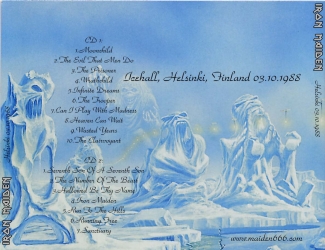 IRON MAIDEN
Helsinki 03.10.1988
Icehall, Helsinki, Finland 03.10.1988
CD 1:
1.Moonchild
2.The Evil That Men Do
3.The Prisoner
4.Wrathchild
5.Infinite Dreams
6.The Trooper
7.Can I Play With Madness
8.Heaven Can Wait
9.Wasted Years
10.The Clairvoyant
CD 2:
1.Seventh Son Of A Seventh Son
2.The Number Of The Beast
3.Hallowed Be Thy Name
4.Iron Maiden
5.Run To The Hills
6.Running Free
7.Sanctuary
www.maiden666.com
IRON MAIDEN
Helsinki 03.10.1988